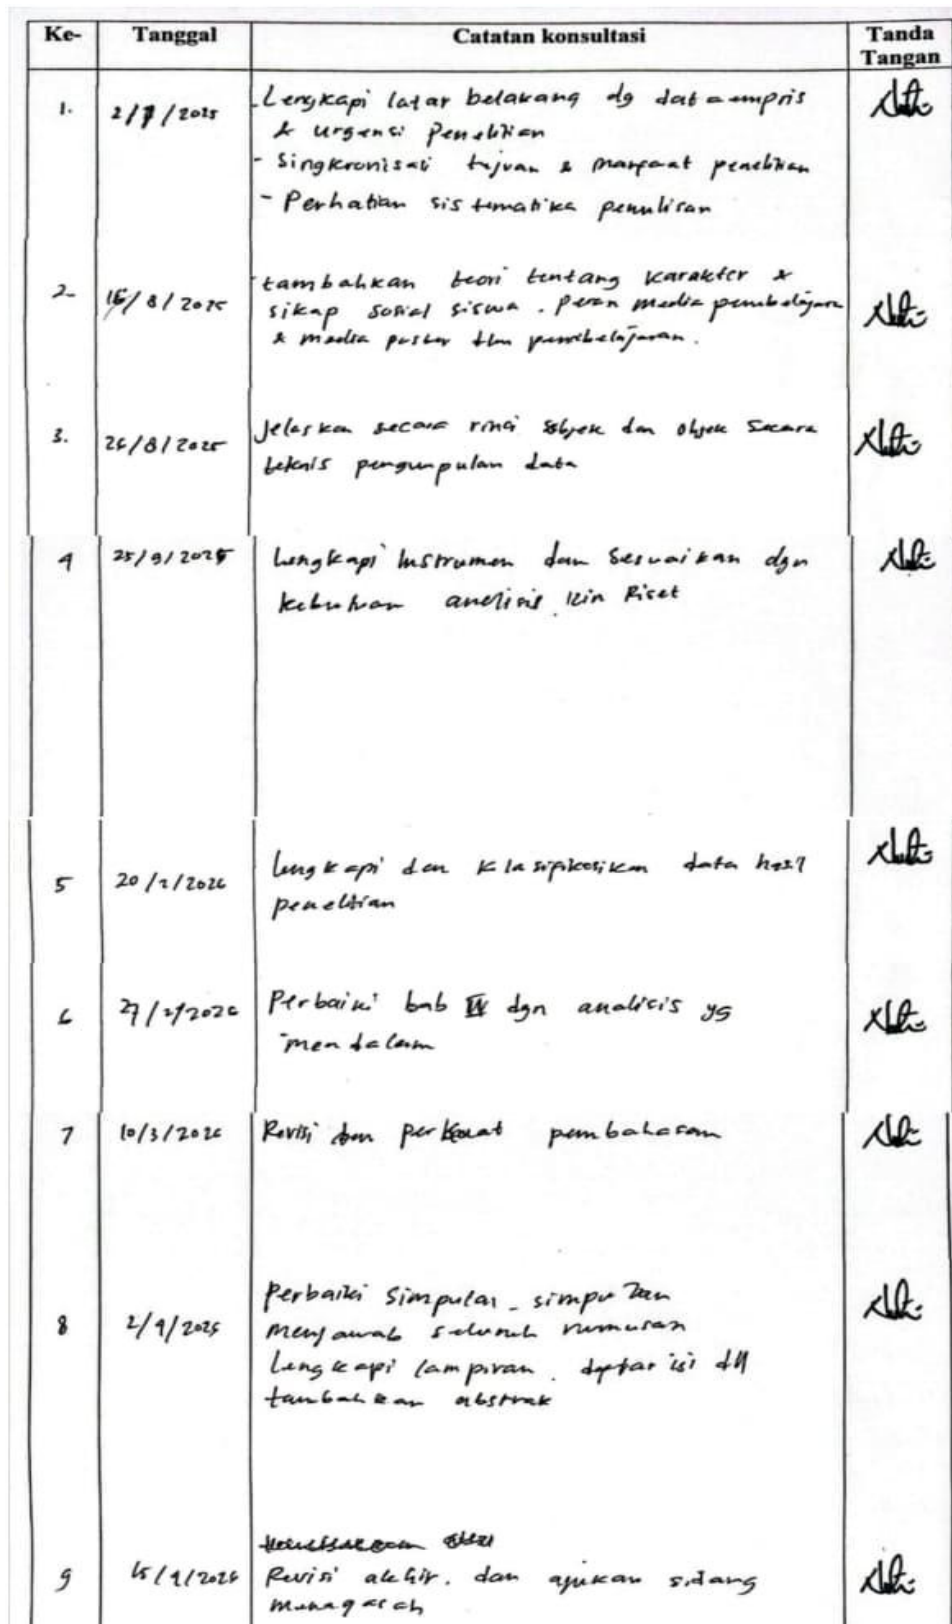 Ke- Tanggal Catatan konsultasi Tanda Tangan
1. 2/7/2025 - Lengkapi latar belakang dg data empris
& urgensi Penelitian
- Singkronisasi tujuan & manfaat penelitian
- Perhatian sistematika penulisan
2- 15/8/2025 - tambahkan teori tentang karakter &
sikap sosial siswa. Peran media pembelajaran
& media poster dlm pembelajaran.
3. 26/8/2025 Jelaskan secara rinci subjek dan objek secara
teknis pengumpulan data
4 25/9/2025 Lengkapi Instrumen dan Sesuaikan dgn
kebutuhan analisis Izin Riset
5 20/2/2026 lengkapi dan klasifikasikan data hasil
penelitian
6 27/2/2026 Perbaiki bab IV dgn analisis yg
mendalam
7 10/3/2026 Revisi dan perkuat pembahasan
8 2/4/2026 perbaiki simpulan - simpulan
menjawab seluruh rumusan
Lengkapi lampiran. daftar isi dll
tambahkan abstrak
9 15/4/2026 Revisi akhir. dan ajukan sidang
munaqasah